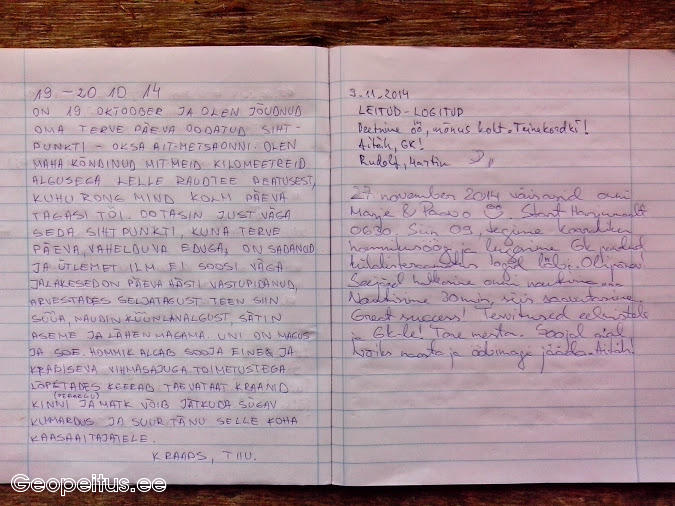 19 - 20 10 14
ON 19 OKTOOBER JA OLEN JÕUDNUD
OMA TERVE PÄEVA OODATUD SIHT-
PUNKTI - OKSA AIT-METSAONNI. OLEN
MAHA KÕNDINUD MITMEID KILOMEETREID
ALGUSEGA LELLE RAUDTEE PEATUSEST,
KUHU RONG MIND KOLM PÄEVA
TAGASI TÕI. OOTASIN JUST VÄGA
SEDA SIHTPUNKTI, KUNA TERVE
PÄEVA, VAHELDUVA EDUGA, ON SADANUD
JA ÜTLEMET ILM EI SOOSI VÄGA
JALAKESED ON PÄEVA HÄSTI VASTUPIDANUD,
ARVESTADES SELJATAGUST. TEEN SIIN
SÜÜA, NAUDIN KÜÜNLAVALGUST, SÄTIN
ASEME JA LÄHEN MAGAMA. UNI ON MAGUS
JA SOE. HOMMIK ALGAB SOOJA EINEGA JA
KRADISEVA VIHMASAJUGA TOIMETUSTEGA
LÕPETADES KEERAB TAEVATAAT KRAANID
KINNI JA MATK VÕIB JÄTKUDA SÜGAV
(PEAAEGU)
KUMARDUS JA SUUR TÄNU SELLE KOHA
KAASAAITAJATELE.
KRAAPS, TIIU.
9.11.2014
LEITUD - LOGITUD
öö, mõnus koht. Teinekordki!
Aitäh, GK!
Rudolf, Martin
27 november 2014 võõrad
Marge & Paavo Start
0630. Siin 09. tegime
hommikusöögi ja GK
Olijõrve!
Nautisime 30min, siis
Great success! Tervitused eelmistele
ja GK-le! Tore metsa. Soojal ajal
võiks naasta ja ööbimage jääda. Aitäh!
Geopeitus.ee